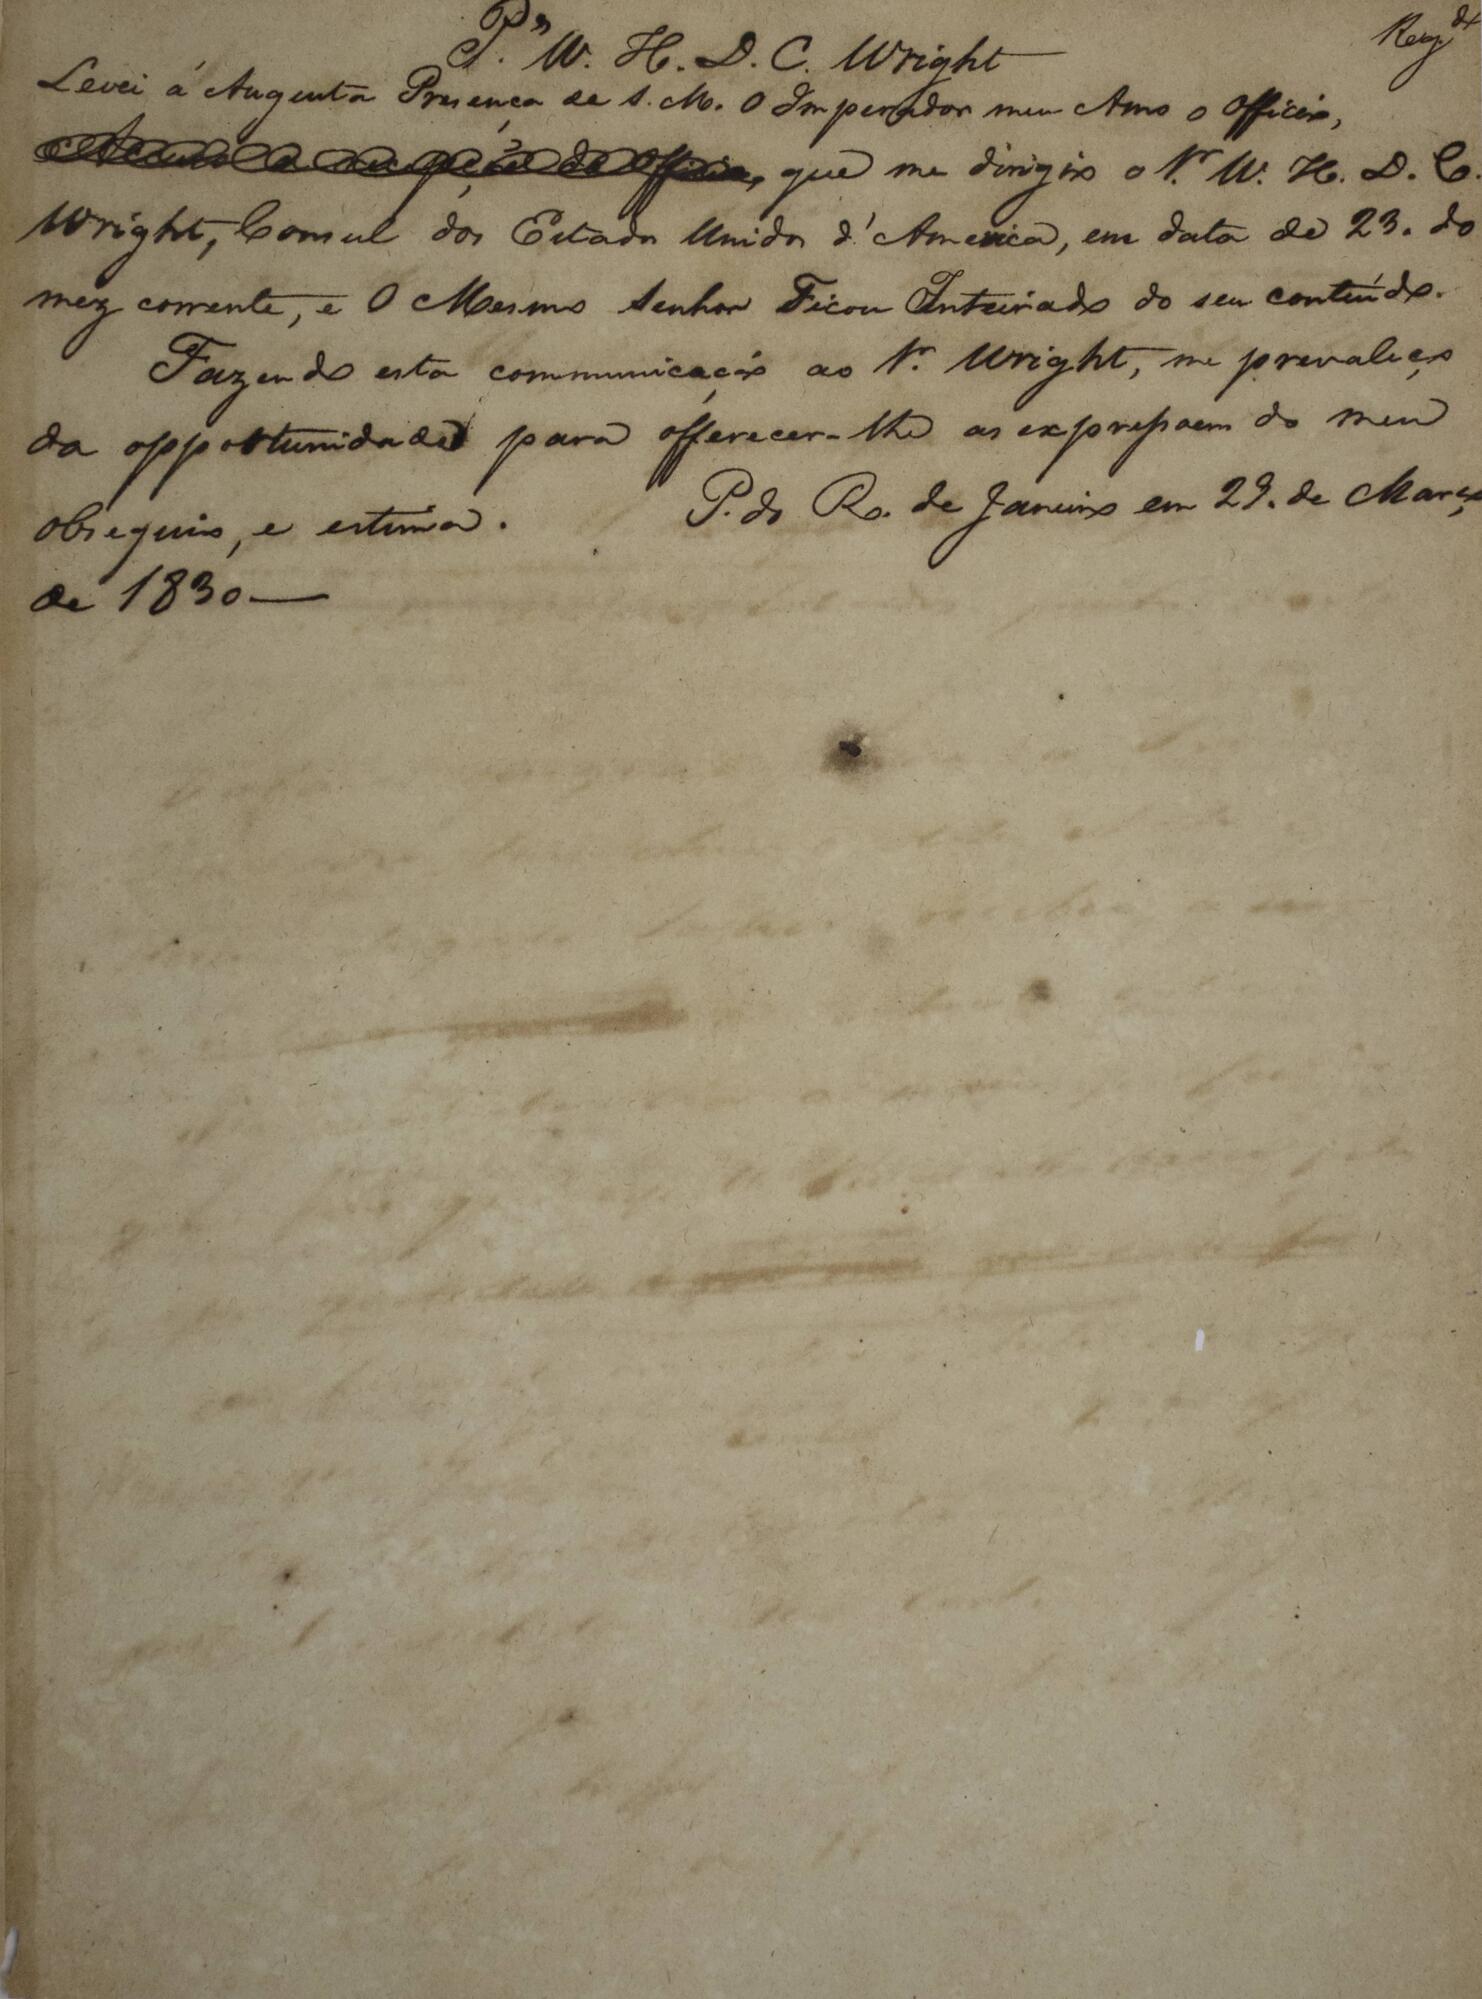 P.ª W. H. D. C. Wright
Reg.do
Levei á Augusta Presença de S. M. O Imperador meu Amo o Officio,
Accuso a recepção do Officio, que me dirigio o Sr. W. H. D. C.
Wright, Consul dos Estados Unidos d'America, em data de 23. do
mez corrente, e O Mesmo Senhor Ficou Inteirado do seu contiúdo.
Fazendo esta communicação ao Sr. Wright, me prevaleço
da opportunidade para offerecer-lhe as expressoens do meu
obsequio, e estima. P. do Ro. de Janeiro em 29. de Março
de 1830